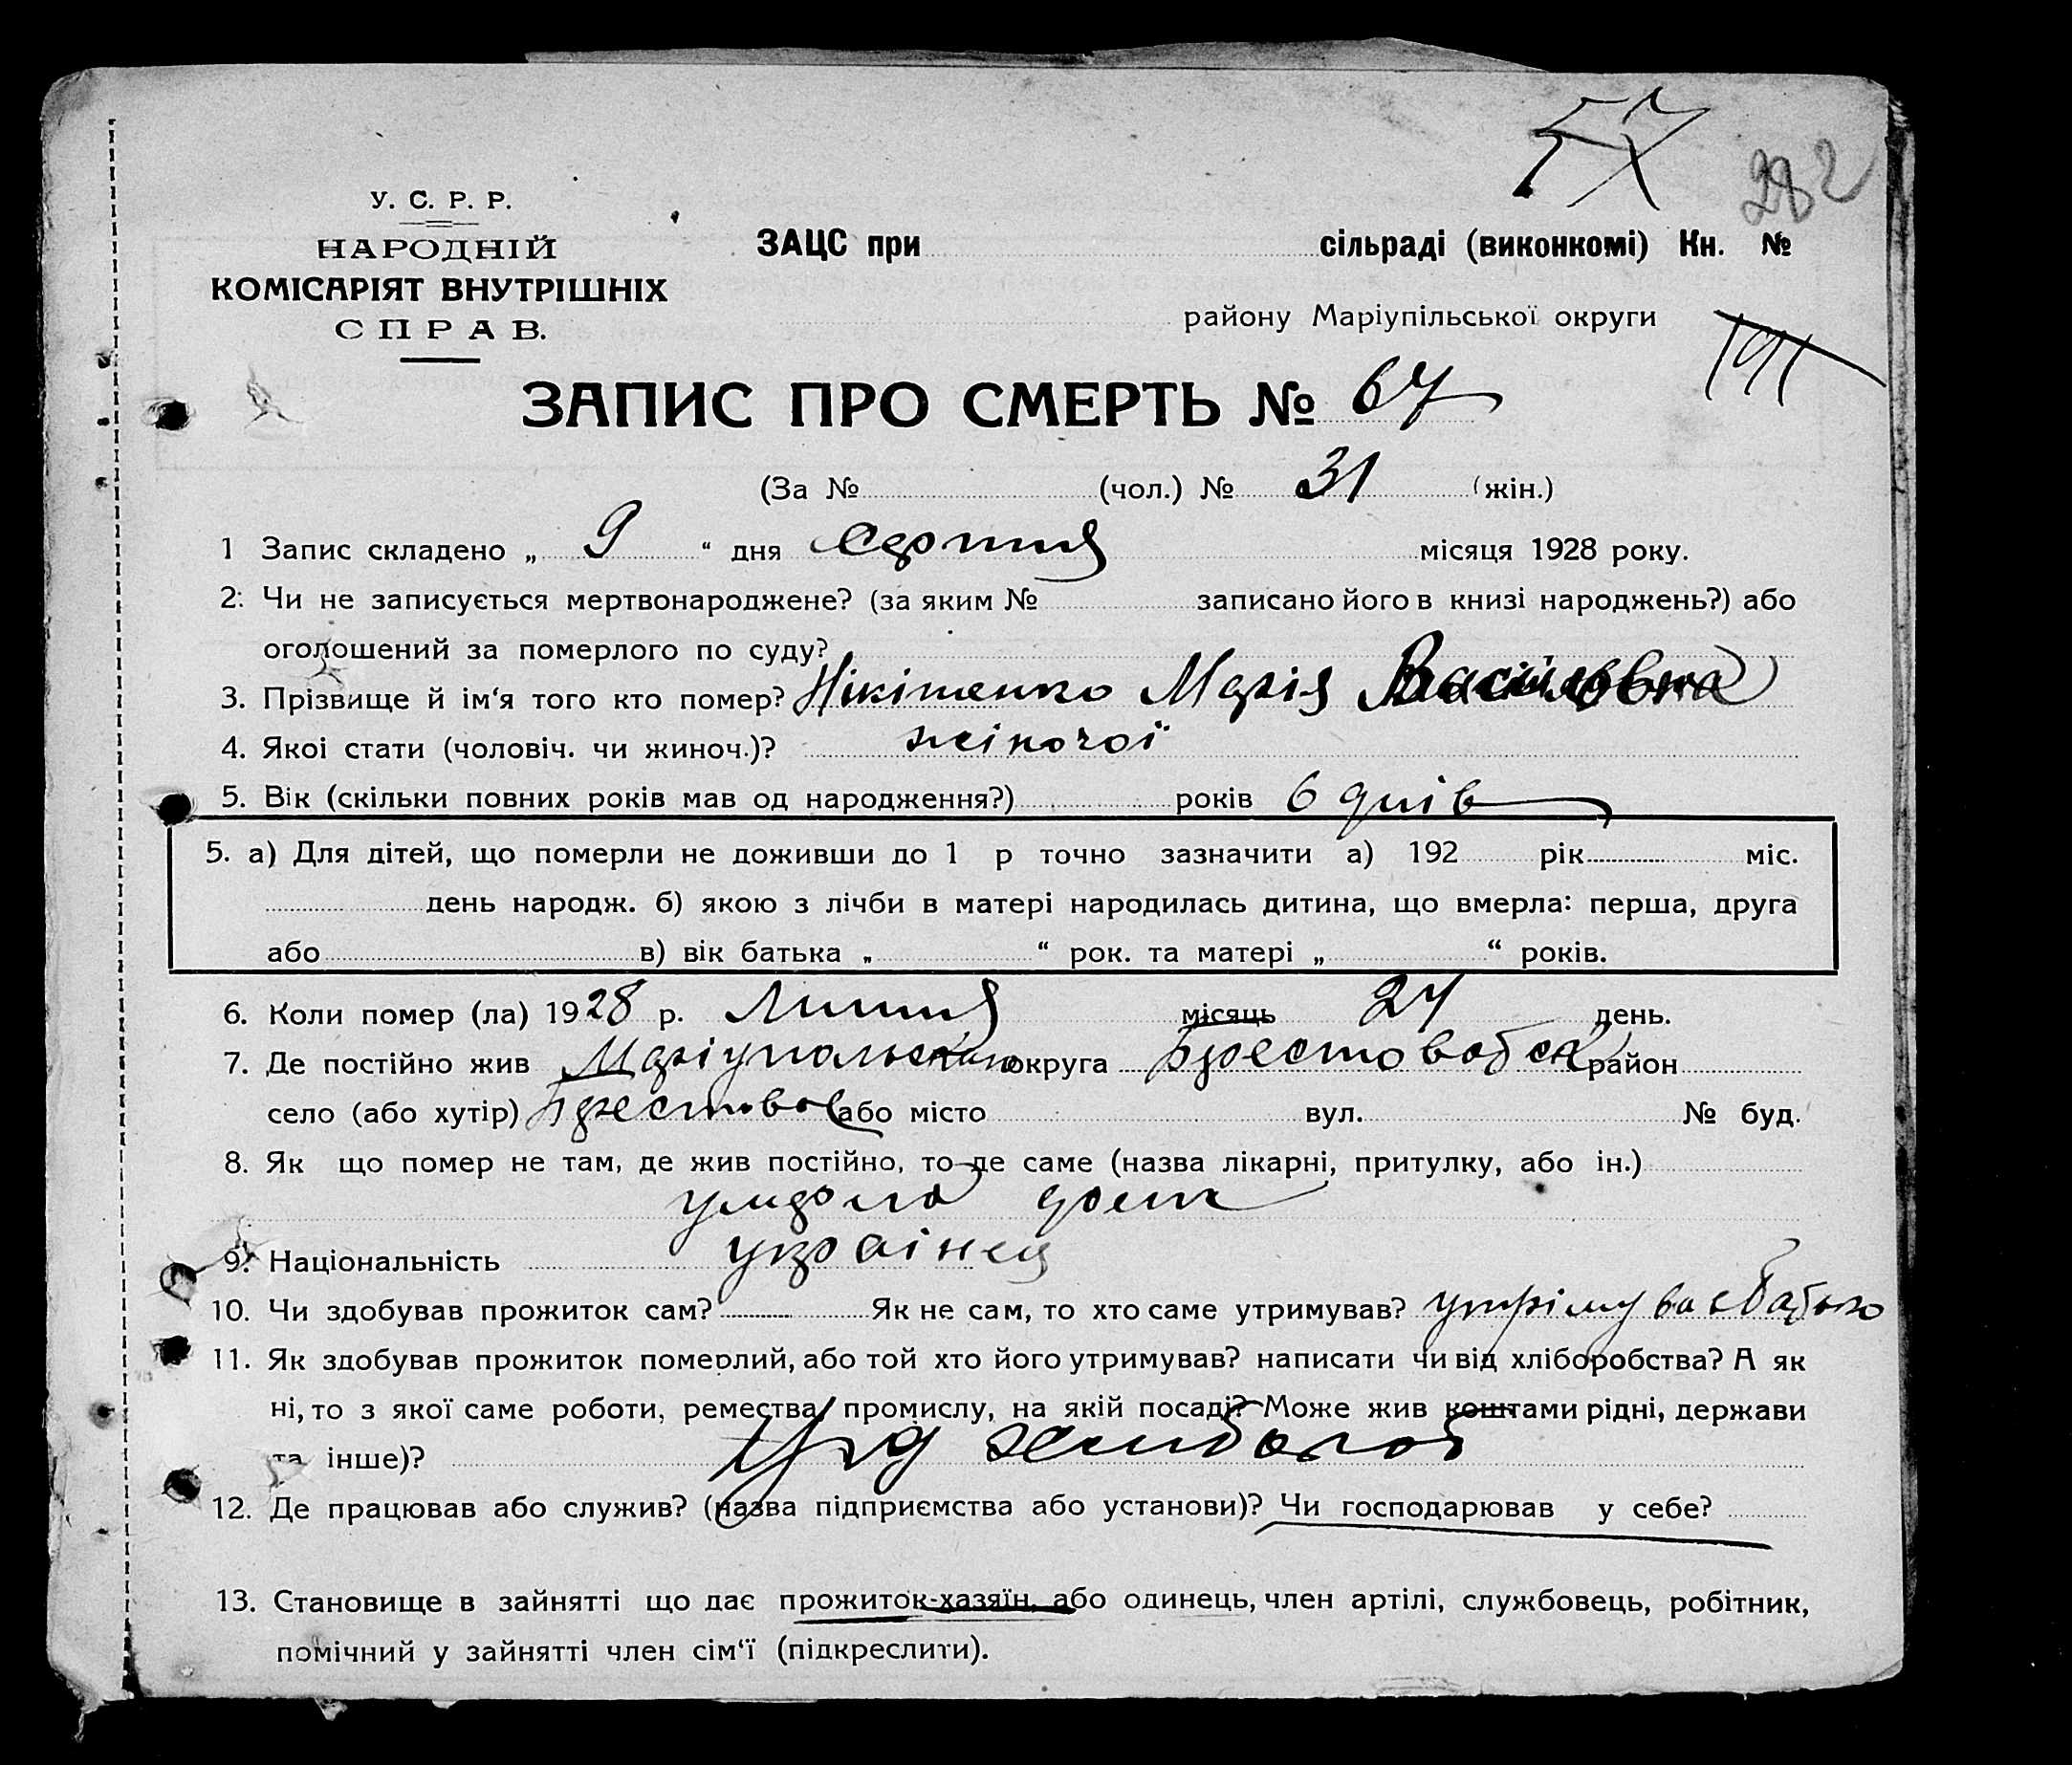 57
282
У. С. Р. Р.
НАРОДНІЙ
КОМІСАРІЯТ ВНУТРІШНІХ
СПРАВ.
ЗАЦС при сільраді (виконкомі) Кн. №
району Маріупільської округи
191
ЗАПИС ПРО СМЕРТЬ № 67
(За № (чол.) № 31 (жін.)
1 Запис складено „ 9 “ дня Серпня місяця 1928 року.
2. Чи не записується мертвонароджене? (за яким № записано його в книзі народжень?) або
оголошений за померлого по суду?
3. Прізвище й ім‘я того кто помер? Нікітенко Марія Васильовна
4. Якоі стати (чоловіч. чи жиноч.)? жіночої
5. Вік (скільки повних років мав од народження?) років 6 днів
5. а) Для дітей, що померли не доживши до 1 р точно зазначити а) 192 рік міс.
день народж. б) якою з лічби в матері народилась дитина, що вмерла: перша, друга
або в) вік батька „ “ рок. та матері „ “ років.
6. Коли помер (ла) 1928 р. Липня місяць 27 день.
7. Де постійно жив округа район
село (або хутір) або місто вул. № буд.
8. Як що помер не там, де жив постійно, то де саме (назва лікарні, притулку, або ін.)
умерла дома
9. Національність українец
10. Чи здобував прожиток сам? Як не сам, то хто саме утримував? утрімував батько
11. Як здобував прожиток померлий, або той хто його утримував? написати чи від хліборобства? А як
ні, то з якої саме роботи, ремества, промислу, на якій посаді? Може жив коштами рідні, держави
та інше)?
12. Де працював або служив? (назва підприємства або установи)? Чи господарював у себе?
13. Становище в зайнятті що дає прожиток-хазяїн, або одинець, член артілі, службовець, робітник,
помічний у зайнятті член сім‘ї (підкреслити).